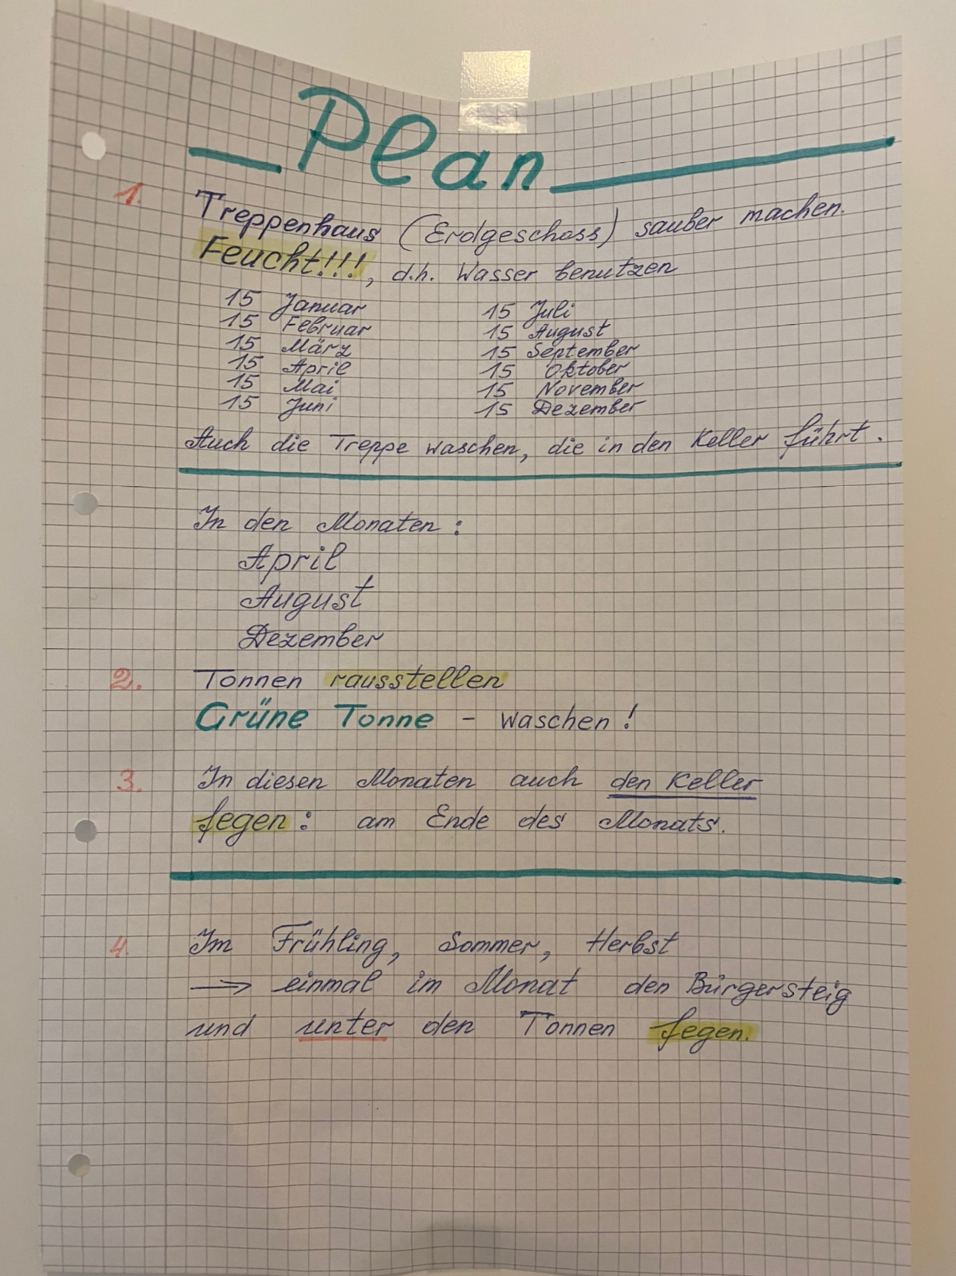 Plan
1. Treppenhaus (Erdgeschoss) sauber machen.
Feucht!!!, d.h. Wasser benutzen
15 Januar 15 Juli
15 Februar 15 August
15 März 15 September
15 April 15 Oktober
15 Mai 15 November
15 Juni 15 Dezember
Auch die Treppe waschen, die in den Keller führt.
In den Monaten:
April
August
Dezember
2. Tonnen rausstellen
Grüne Tonne - waschen!
3. In diesen Monaten auch den Keller
fegen: am Ende des Monats.
4. Im Frühling, Sommer, Herbst
→ einmal im Monat den Bürgersteig
und unter den Tonnen fegen.